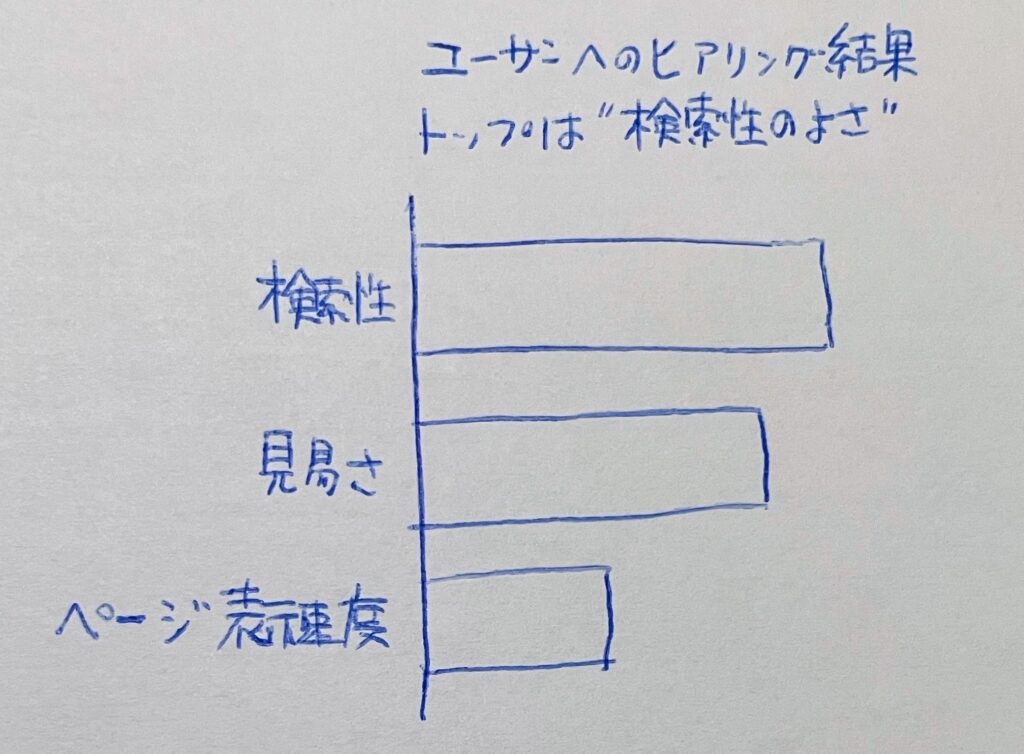 ユーザーへのヒアリング結果
トップは"検索性のよさ"
検索性
見易さ
ページ表示速度